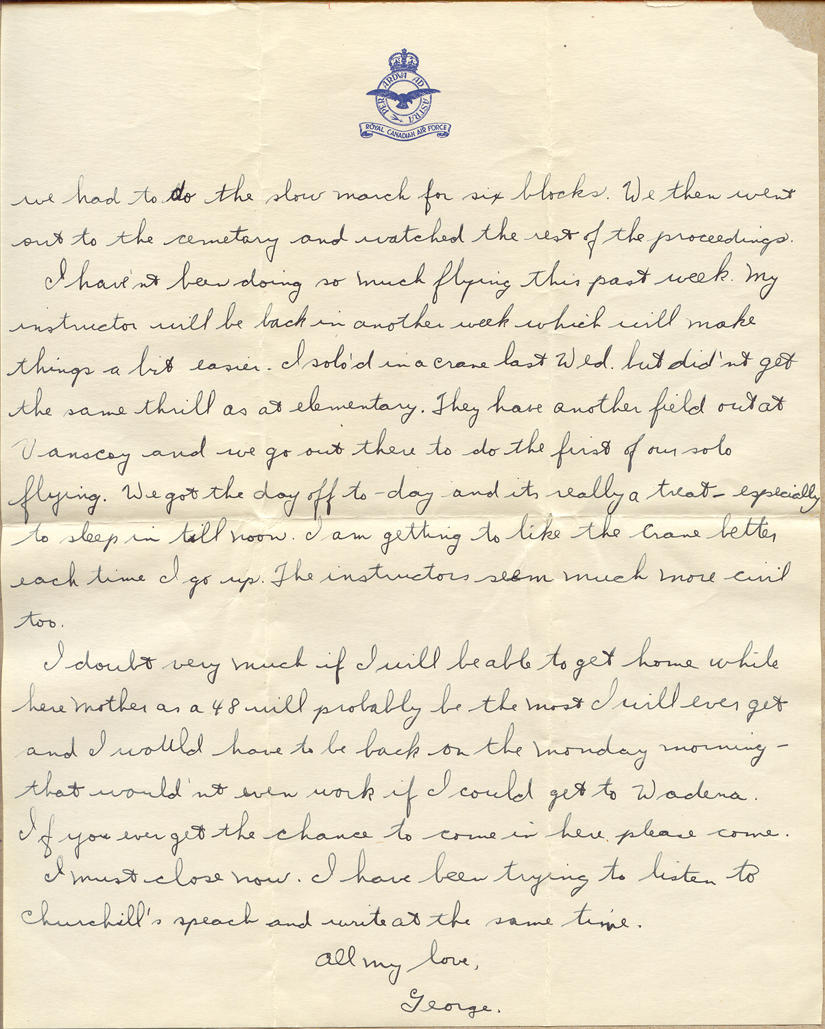 PER ARDVA AD ASTRA
ROYAL CANADIAN AIR FORCE
we had to do the slow march for six blocks. We then went
out to the cemetary and watched the rest of the proceedings.
I have'nt been doing so much flying this past week. My
instructor will be back in another week which will make
things a bit easier. I solo'd in a crane last Wed. but did'nt get
the same thrill as at elementary. They have another field out at
Vanscoy and we go out there to do the first of our solo
flying. We got the day off to-day and its really a treat - especially
to sleep in till noon. I am getting to like the Crane better
each time I go up. The instructors seem much more civil
too.
I doubt very much if I will be able to get home while
here Mother as a 48 will probably be the most I will ever get
and I would have to be back on the Monday morning -
that would'nt even work if I could get to Wadena.
If you ever get the chance to come in here please come.
I must close now. I have been trying to listen to
Churchill's speach and write at the same time.
All my love,
George.